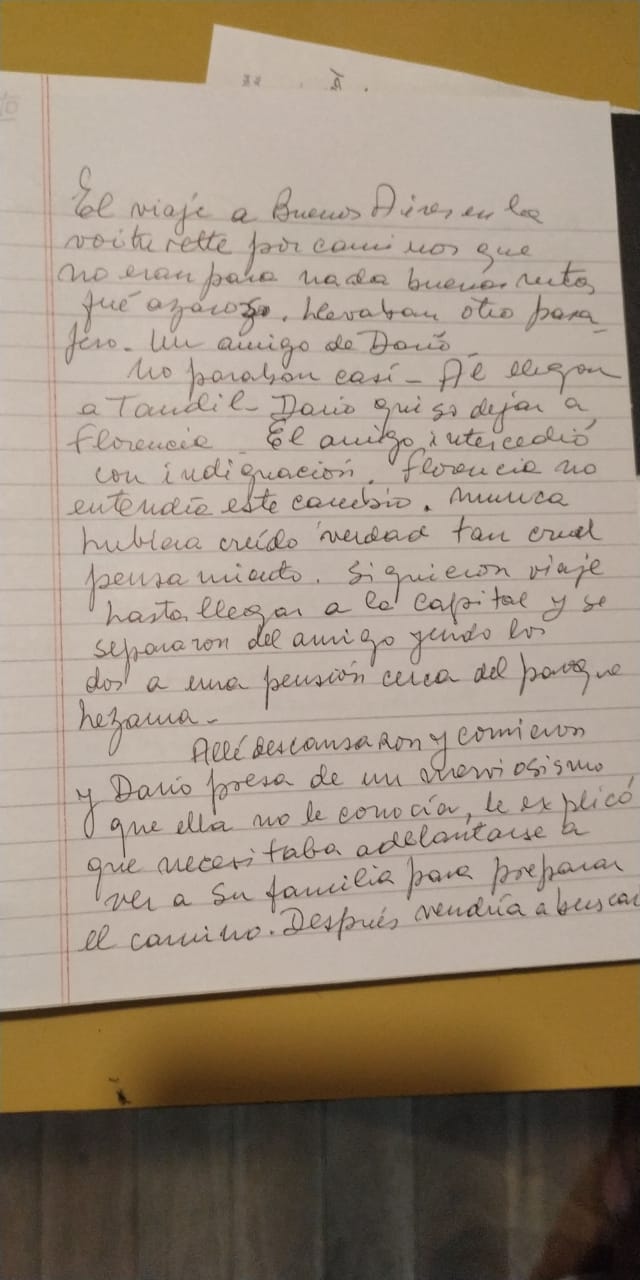 El viaje a Buenos Aires en la
voiturette por caminos que
no eran para nada buenas rutas,
fué azaroso. Llevaban otro pasa-
jero. Un amigo de Darío.
No paraban casi - Al llegar
a Tandil - Darío quiso dejar a
Florencia. El amigo intercedió
con indignación. Florencia no
entendía este cambio. Nunca
hubiera creído verdad tan cruel
pensamiento. Siguieron viaje
hasta llegar a la Capital y se
separaron del amigo yendo los
dos a una pensión cerca del parque
Lezama -
Allí descansaron y comieron
y Darío presa de un nerviosismo
que ella no le conocía, le explicó
que necesitaba adelantarse a
ver a su familia para preparar
el camino. Después vendría a buscar